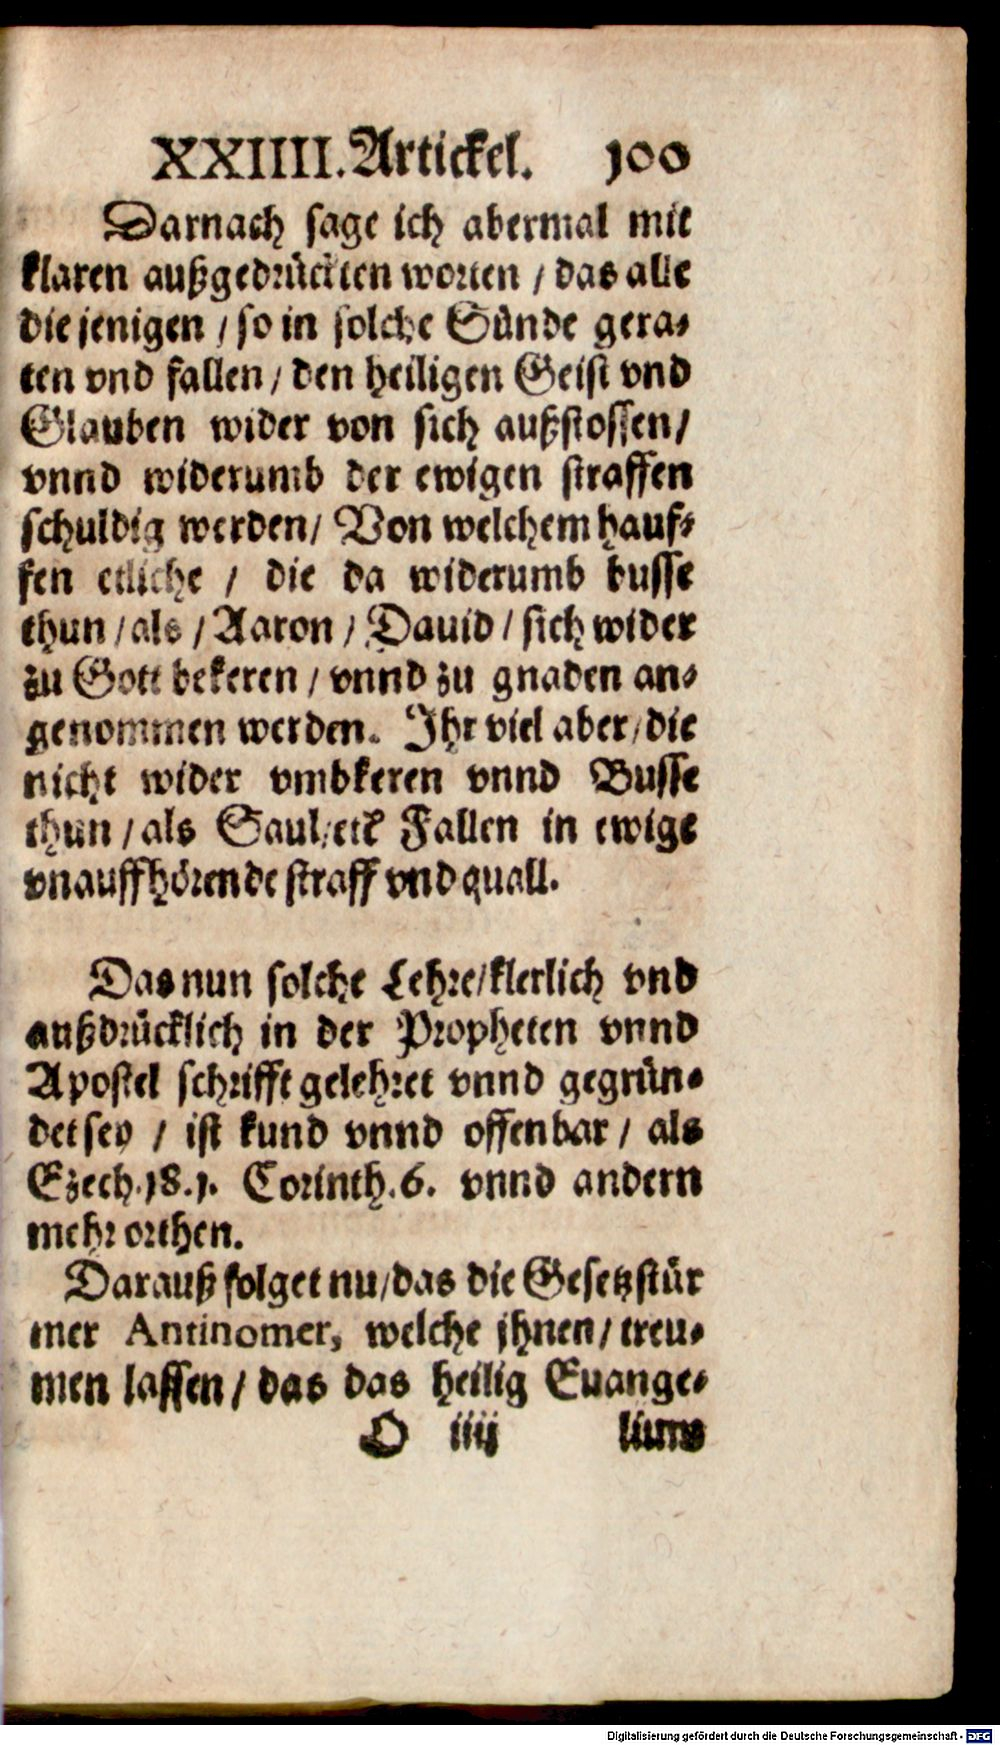 XXIIII. Artickel. 100
Darnach sage ich abermal mit
klaren außgedrückten worten / das alle
die jenigen / so in solche Sünde gera-
ten vnd fallen / den heiligen Geist vnd
Glauben wider von sich außstossen /
vnnd widerumb der ewigen straffen
schuldig werden / Von welchem hauf-
fen etliche / die da widerumb busse
thun / als / Aaron / Dauid / sich wider
zu Gott bekeren / vnnd zu gnaden an-
genommen werden. Ihr viel aber / die
nicht wider vmbkeren vnnd Busse
thun / als Saul / etc Fallen in ewige
vnauffhörende straff vnd quall.
Das nun solche Lehre / klerlich vnd
außdrücklich in der Propheten vnnd
Apostel schrifft gelehret vnnd gegrün-
det sey / ist kund vnnd offenbar / als
Ezech. 18. 1. Corinth. 6. vnnd andern
mehr orthen.
Darauß folget nu / das die Gesetzstür
mer Antinomer, welche jhnen / treu-
men lassen / das das heilig Euange-
O iiij lium
Digitalisierung gefördert durch die Deutsche Forschungsgemeinschaft - DFG